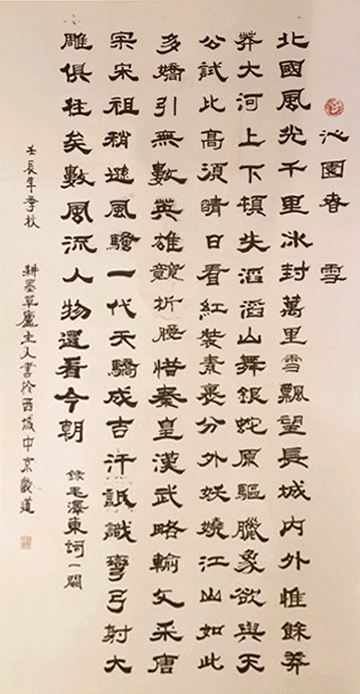 沁園春 雪
北國風光千里冰封萬里雪飄望長城內外惟餘莽
莽大河上下頓失滔滔山舞銀蛇原驅臘象欲與天
公試比高須晴日看紅裝素裹分外妖嬈江山如此
多嬌引無數英雄競折腰惜秦皇漢武略輸文采唐
宗宋祖稍遜風騷一代天驕成吉汗祇識彎弓射大
雕俱往矣數風流人物還看今朝
錄毛澤東詞一闋
壬辰年季秋 耕墨草廬主人書於西城中京畿道